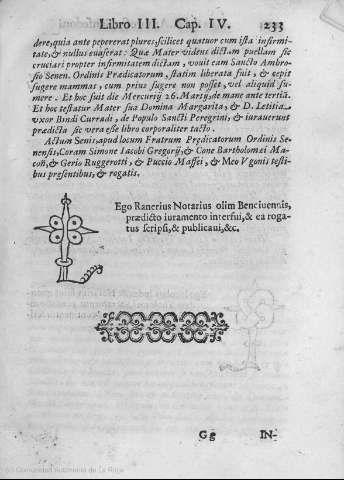 Libro III. Cap. IV. 233
dere, quia ante pepererat plures, scilicet quatuor cum ista infirmi-
tate, & nullus euaserat: Quæ Mater videns dictam puellam sic
cruciari propter infirmitatem dictam, vouit eam Sancto Ambro-
sio Senen. Ordinis Prædicatorum, statim liberata fuit, & cepit
sugere mammas, cum prius sugere non posset, vel aliquid su-
mere. Et hoc fuit die Mercurij 26. Martij, de mane ante tertiã.
Et hoc testatur Mater sua Domina Margarita, & D. Letitia
vxor Bindi Curradi, de Populo Sancti Peregrini, & iurauerunt
prædicta sic vera esse libro corporaliter tacto.
Actum Senis, apud locum Fratrum Prædicatorum Ordinis Se-
nensis, Coram Simone Iacobi Gregorij, & Cone Bartholomæi Ma-
coñ, & Gerio Ruggerotti, & Puccio Massei, & Meo Vgonis testi-
bus præsentibus, & rogatis.
Ego Ranerius Notarius olim Benciuennis,
prædicto iuramento interfui, & ea roga-
tus scripsi, & publicaui, &c.
G g IN-
(c) Comunidad Autónoma de La Rioja